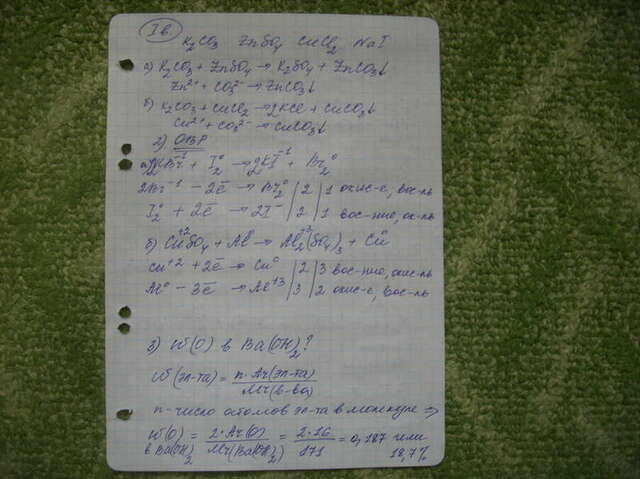 I в.
K2CO3 ZnSO4 CuCl2 NaI
а) K2CO3 + ZnSO4 → K2SO4 + ZnCO3↓
Zn2+ + CO3 2- → ZnCO3↓
б) K2CO3 + CuCl2 → 2KCl + CuCO3↓
Cu2+ + CO3 2- → CuCO3↓
2). ОВР
а) 2KBr-1 + I2 0 → 2KI-1 + Br2 0
2Br-1 - 2e → Br2 0 | 2 | 1 окис-е, вос-ль
I2 0 + 2e → 2I- | 2 | 1 вос-ние, ок-ль
б) Cu+2SO4 + Al → Al2+3(SO4)3 + Cu0
Cu+2 + 2e → Cu0 | 2 | 3 вос-ние, окис-ль
Al0 - 3e → Al+3 | 3 | 2 окис-е, вос-ль
3) W(O) в Ba(OH)2?
W(эл-та) = n·Ar(эл-та)
Mr(в-ва)
n - число атомов эл-та в молекуле ⇒
W(O) = 2·Ar(O) = 2·16 = 0,187 или
в Ba(OH)2 Mr(Ba(OH)2) 171 18,7%